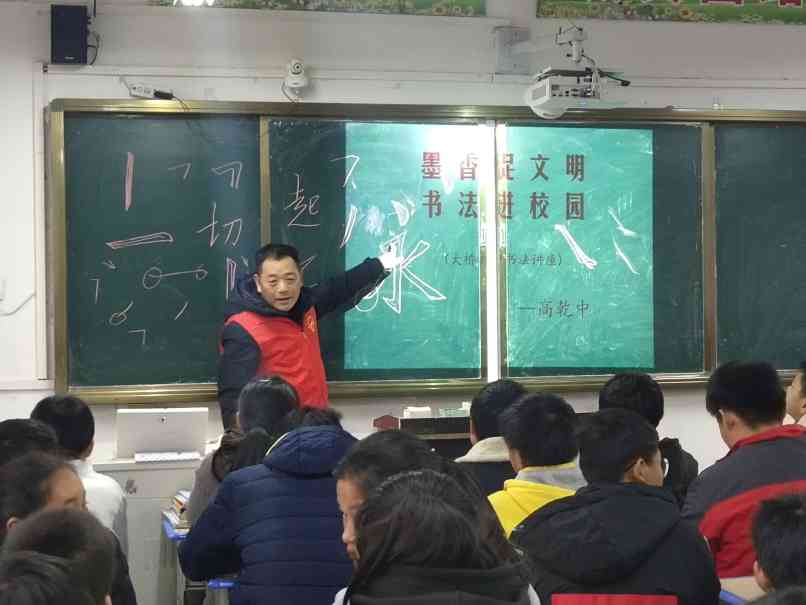 墨香促文明
书法进校园
（大桥 书法讲座）
—高乾中
切
起
永